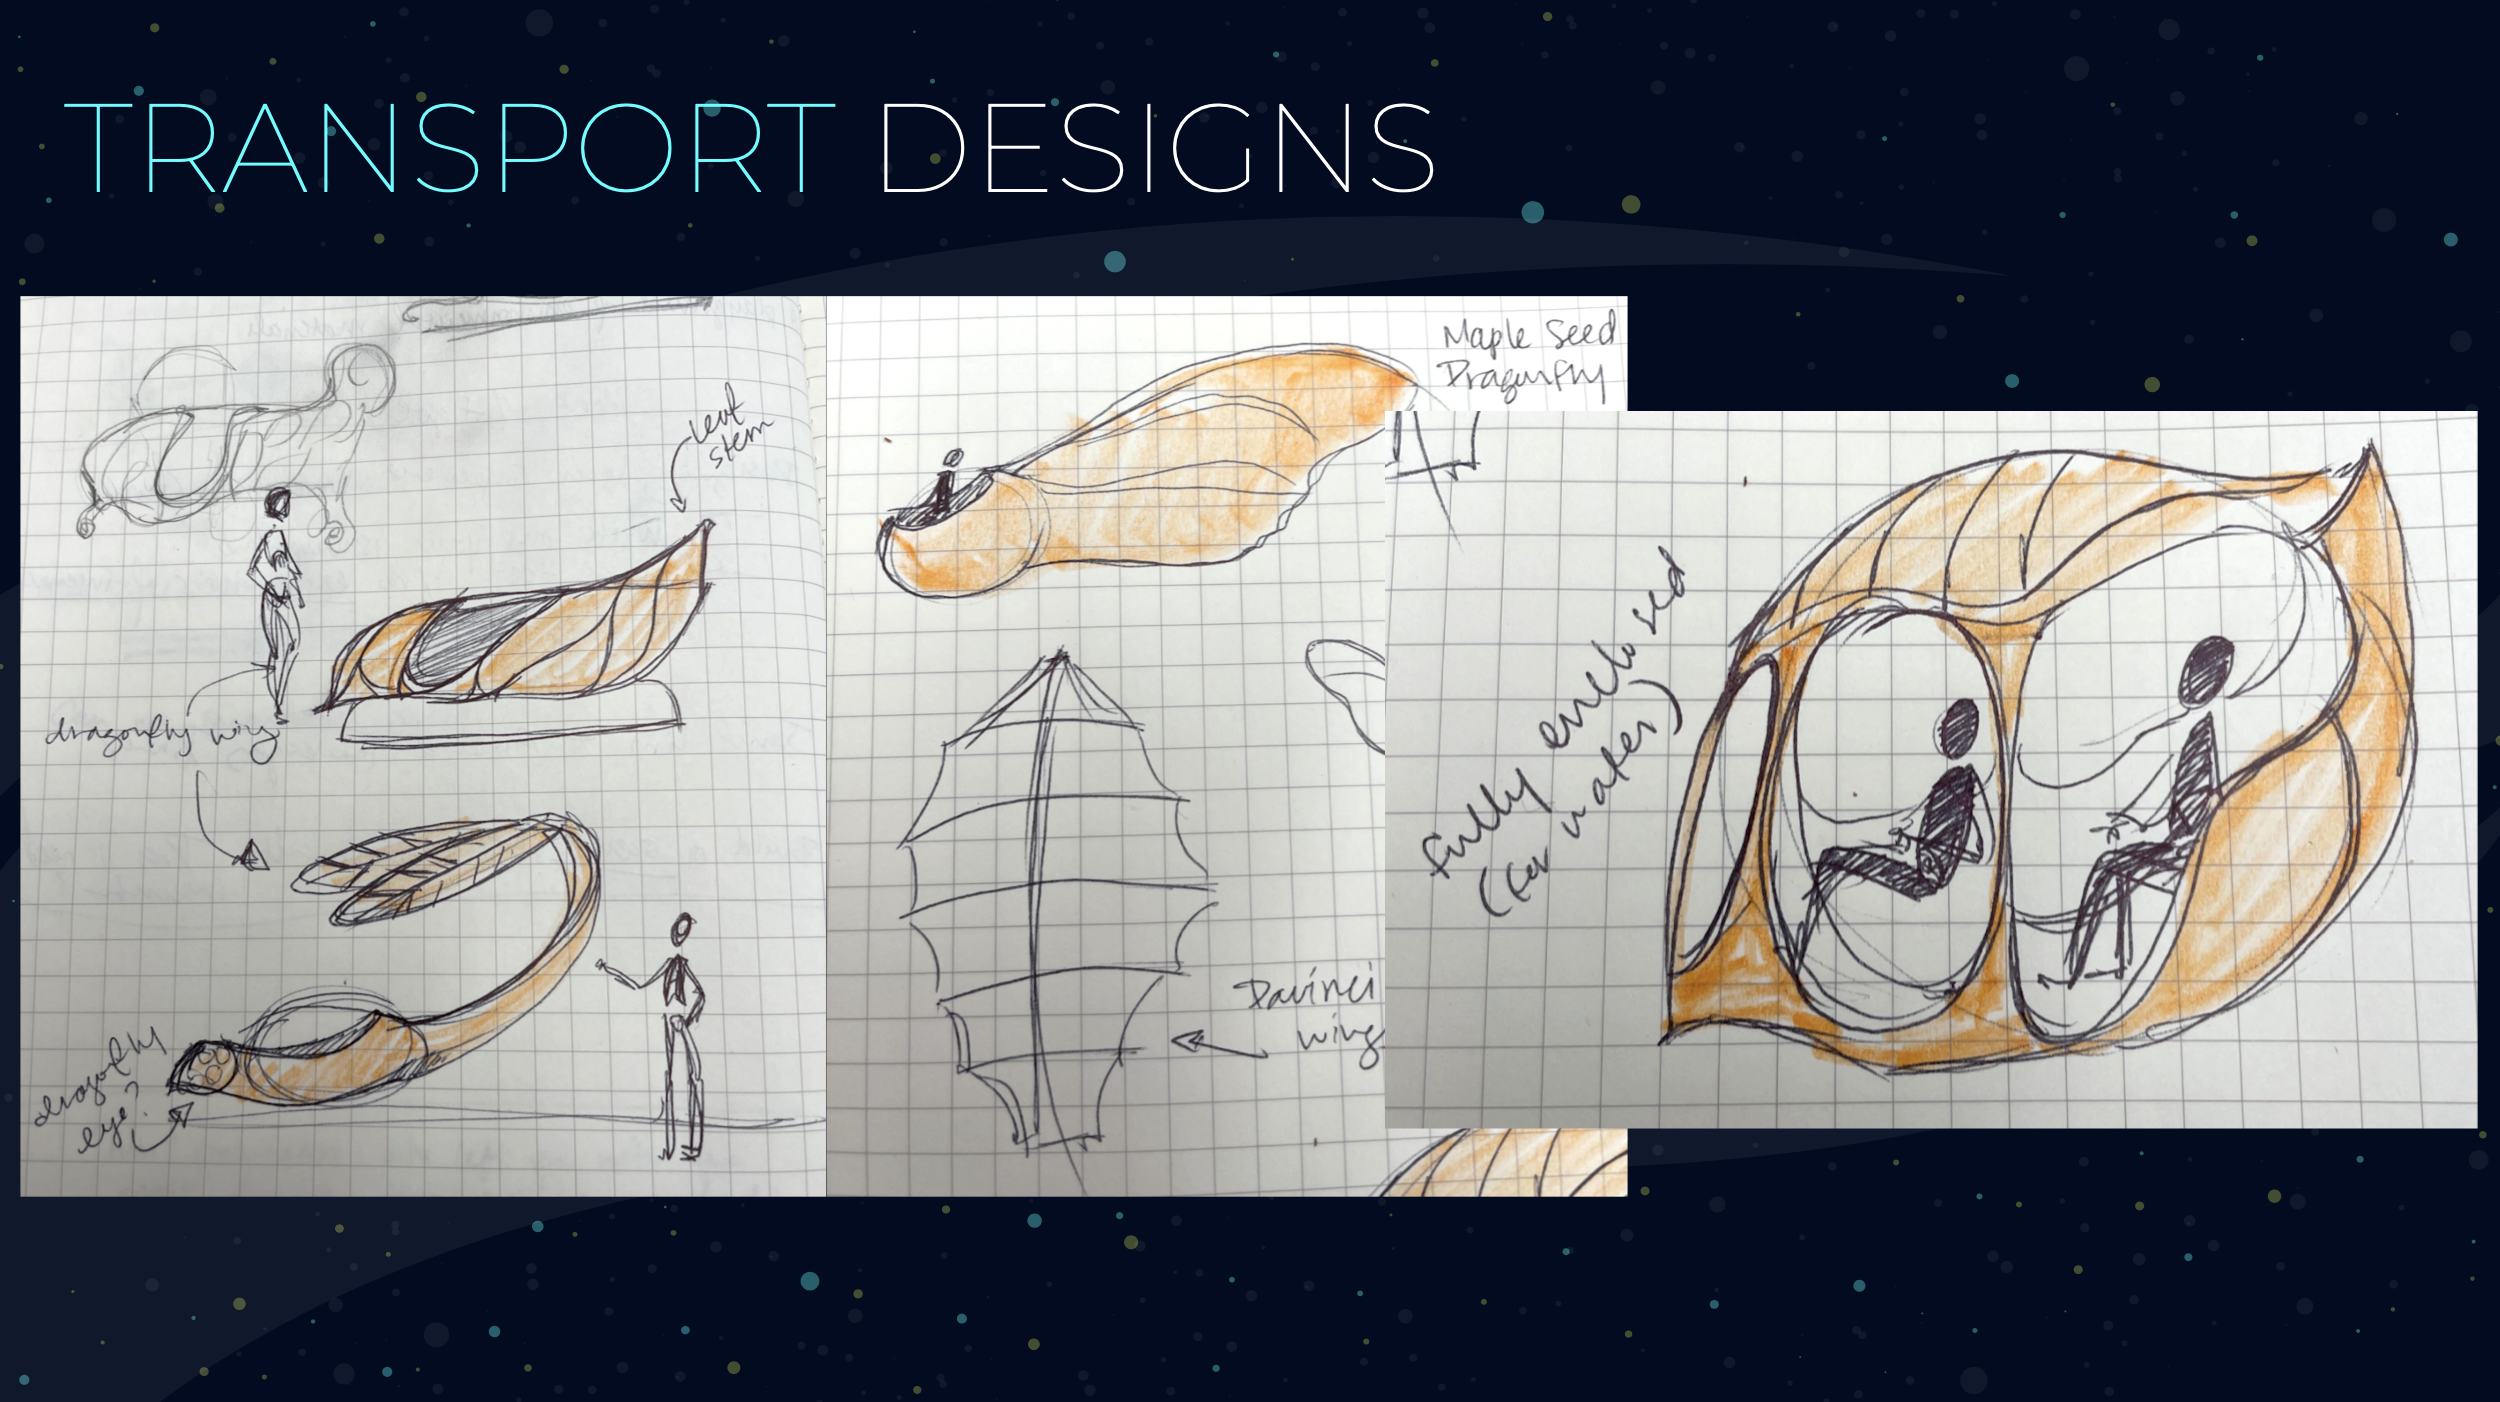 TRANSPORT DESIGNS
stem
dragonfly wing
dragonfly
eye?
Maple Seed
Dragonfly
Davinci
wing
fully enclosed
(for water)